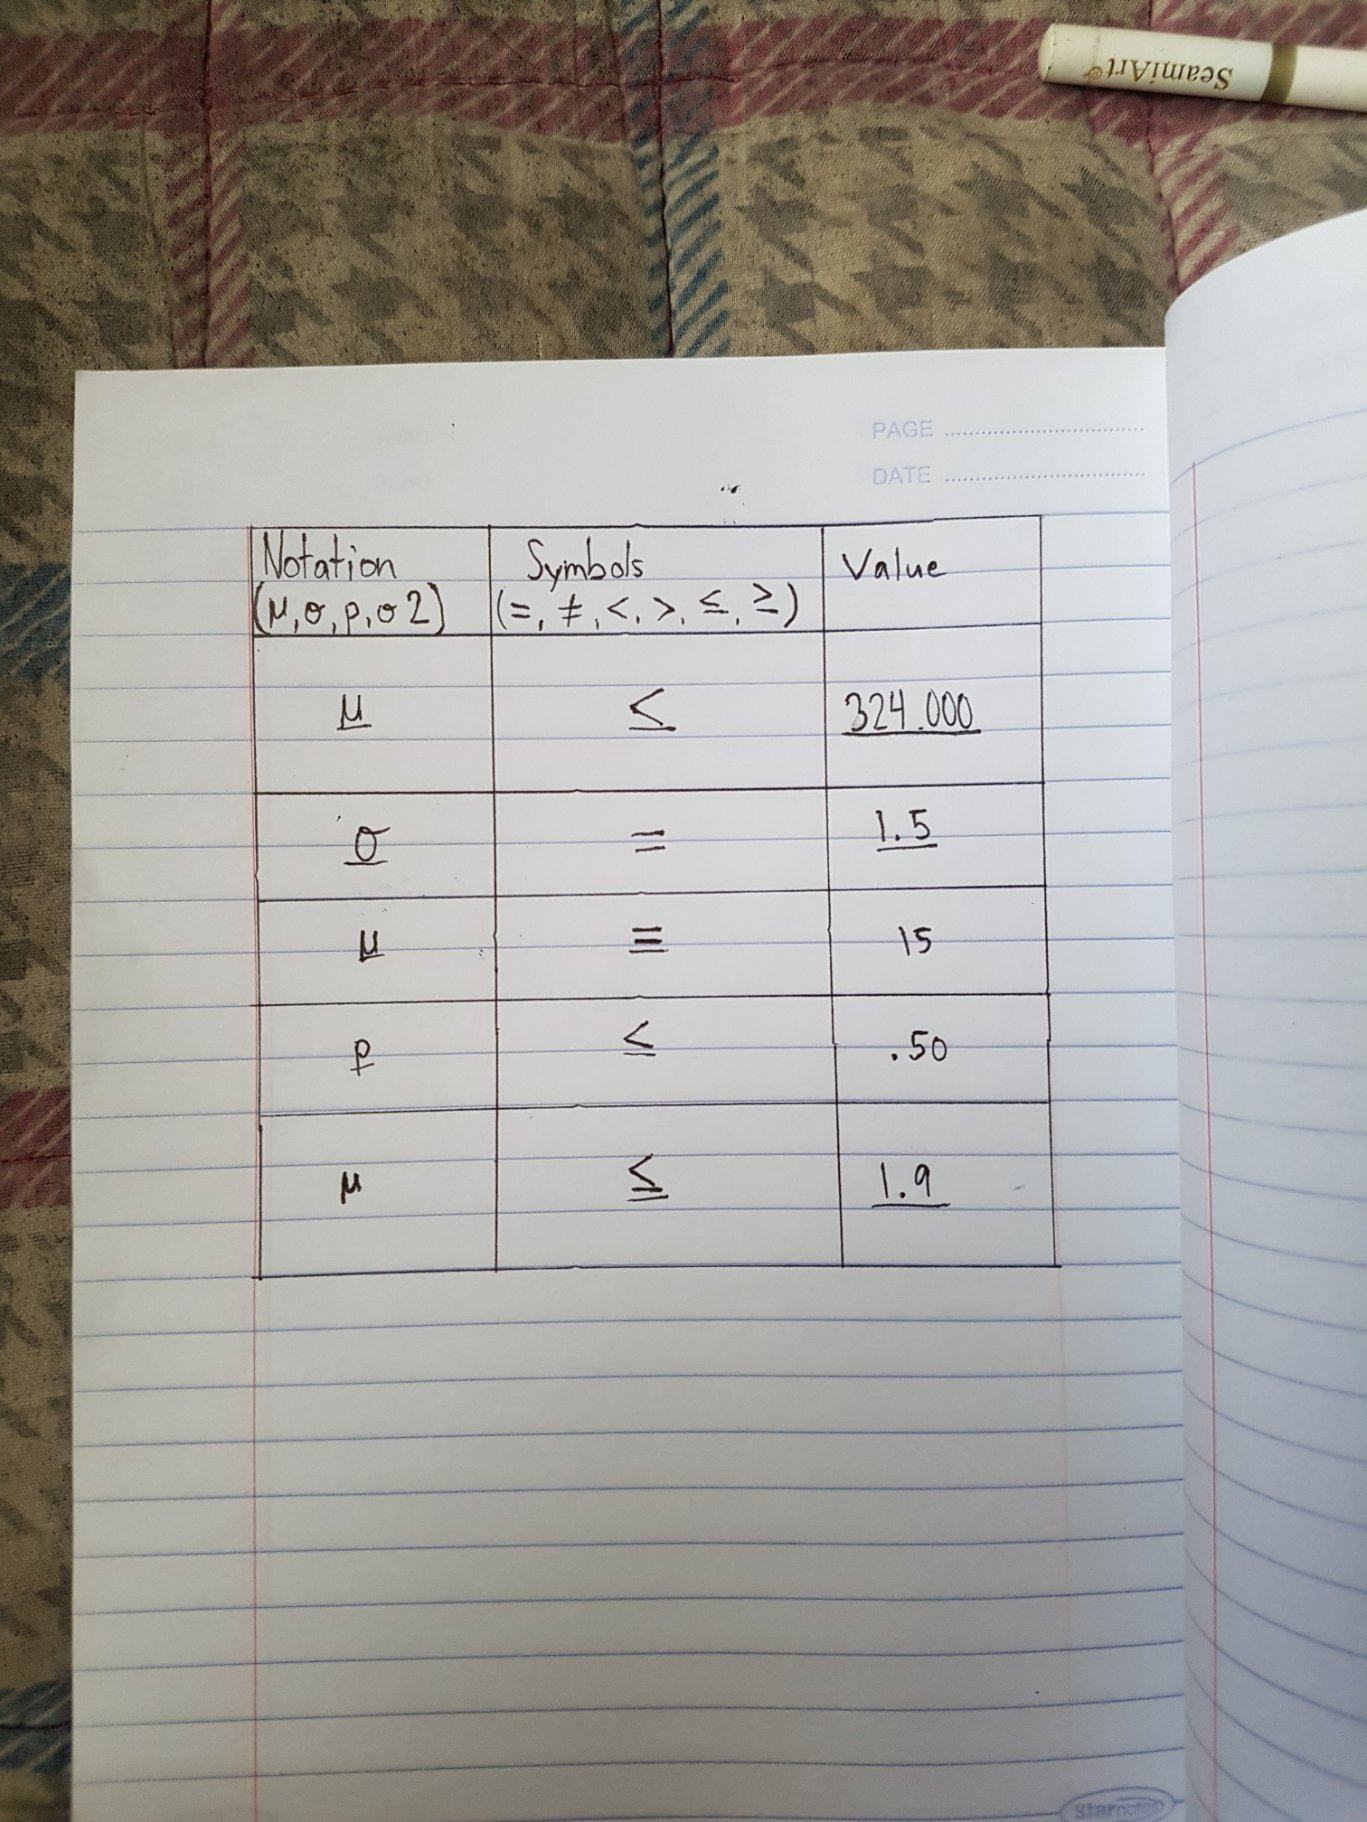 SeamiArt®
PAGE
DATE
Notation Symbols Value
(μ, σ, p, σ 2) (=, ≠, <, >, ≤, ≥)
μ ≤ 324.000
σ = 1.5
μ = 15
p ≤ .50
μ ≤ 1.9
Starnotes